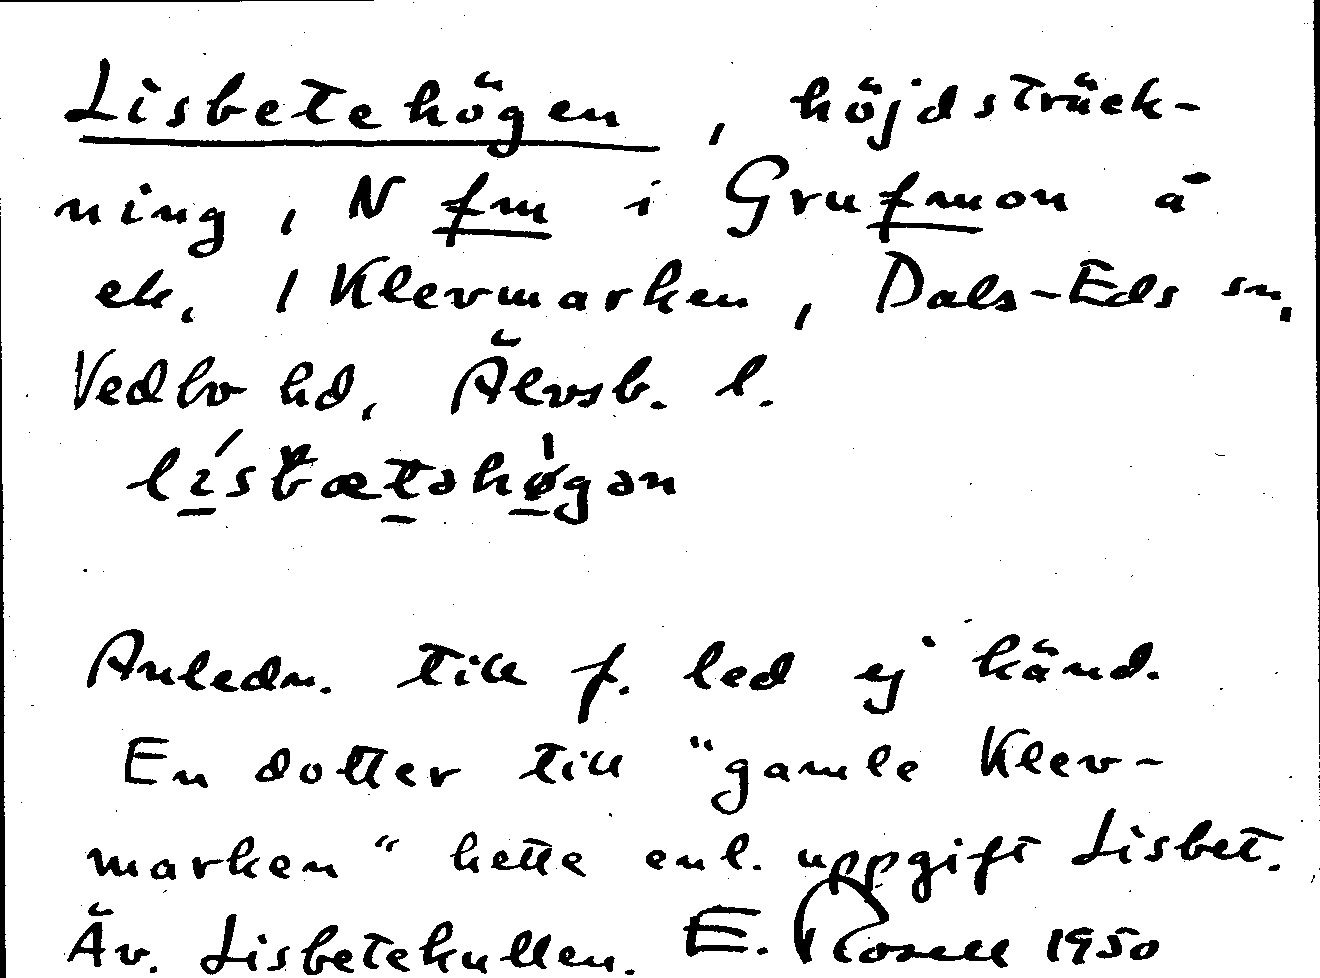 Lisbetehögen, höjdsträck-
ning, N fm i Grufmon å
ek. 1 Klevmarken, Dals-Eds sn,
Vedbo hd, Älvsb. l.
Anledn. till f. led ej känd.
En dotter till "gamle Klev-
marken" hette enl. uppgift Lisbet.
Äv. Lisbetekullen. E. Rosell 1950